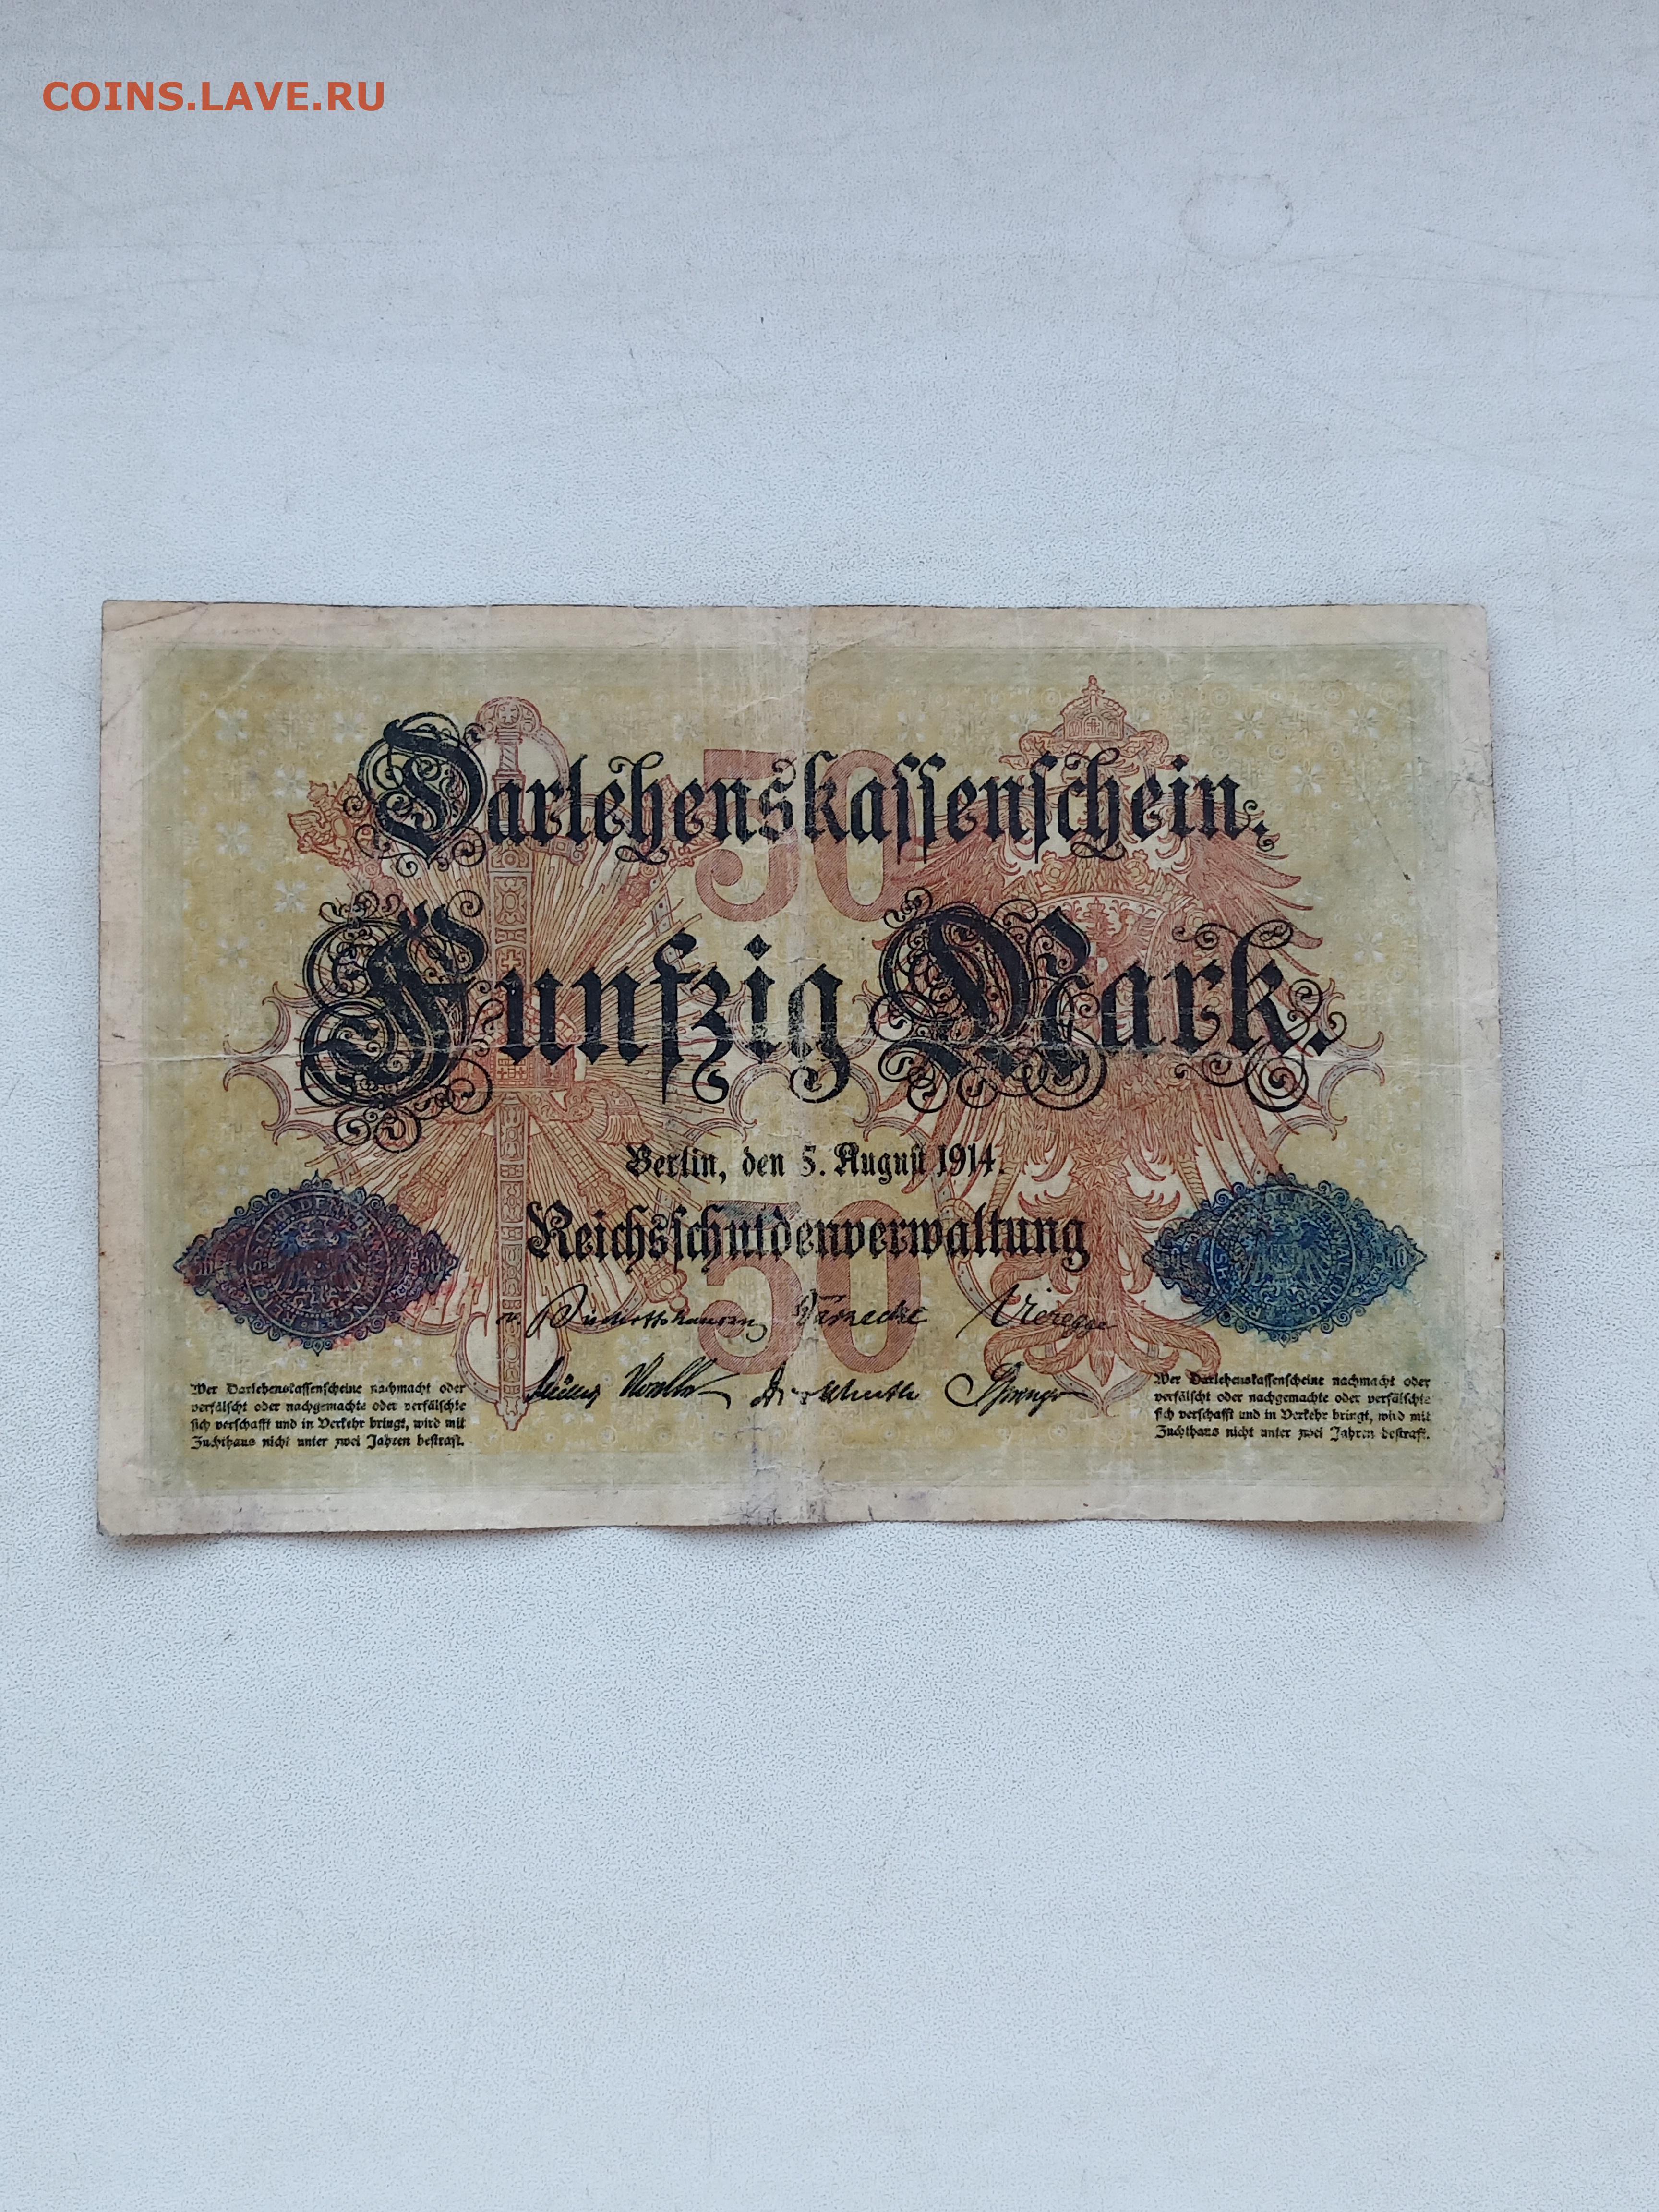 COINS.LAVE.RU
Darlehenskassenschein.
50
Fünfzig Mark.
Berlin, den 5. August 1914.
Reichsschuldenverwaltung
50
v. Bischoffshausen Warnecke Vieregge
Müller Noelle Dickhuth Springer
Wer Darlehenskassenscheine nachmacht oder
verfälscht oder nachgemachte oder verfälschte
sich verschafft und in Verkehr bringt, wird mit
Zuchthaus nicht unter zwei Jahren bestraft.
Wer Darlehenskassenscheine nachmacht oder
verfälscht oder nachgemachte oder verfälschte
sich verschafft und in Verkehr bringt, wird mit
Zuchthaus nicht unter zwei Jahren bestraft.